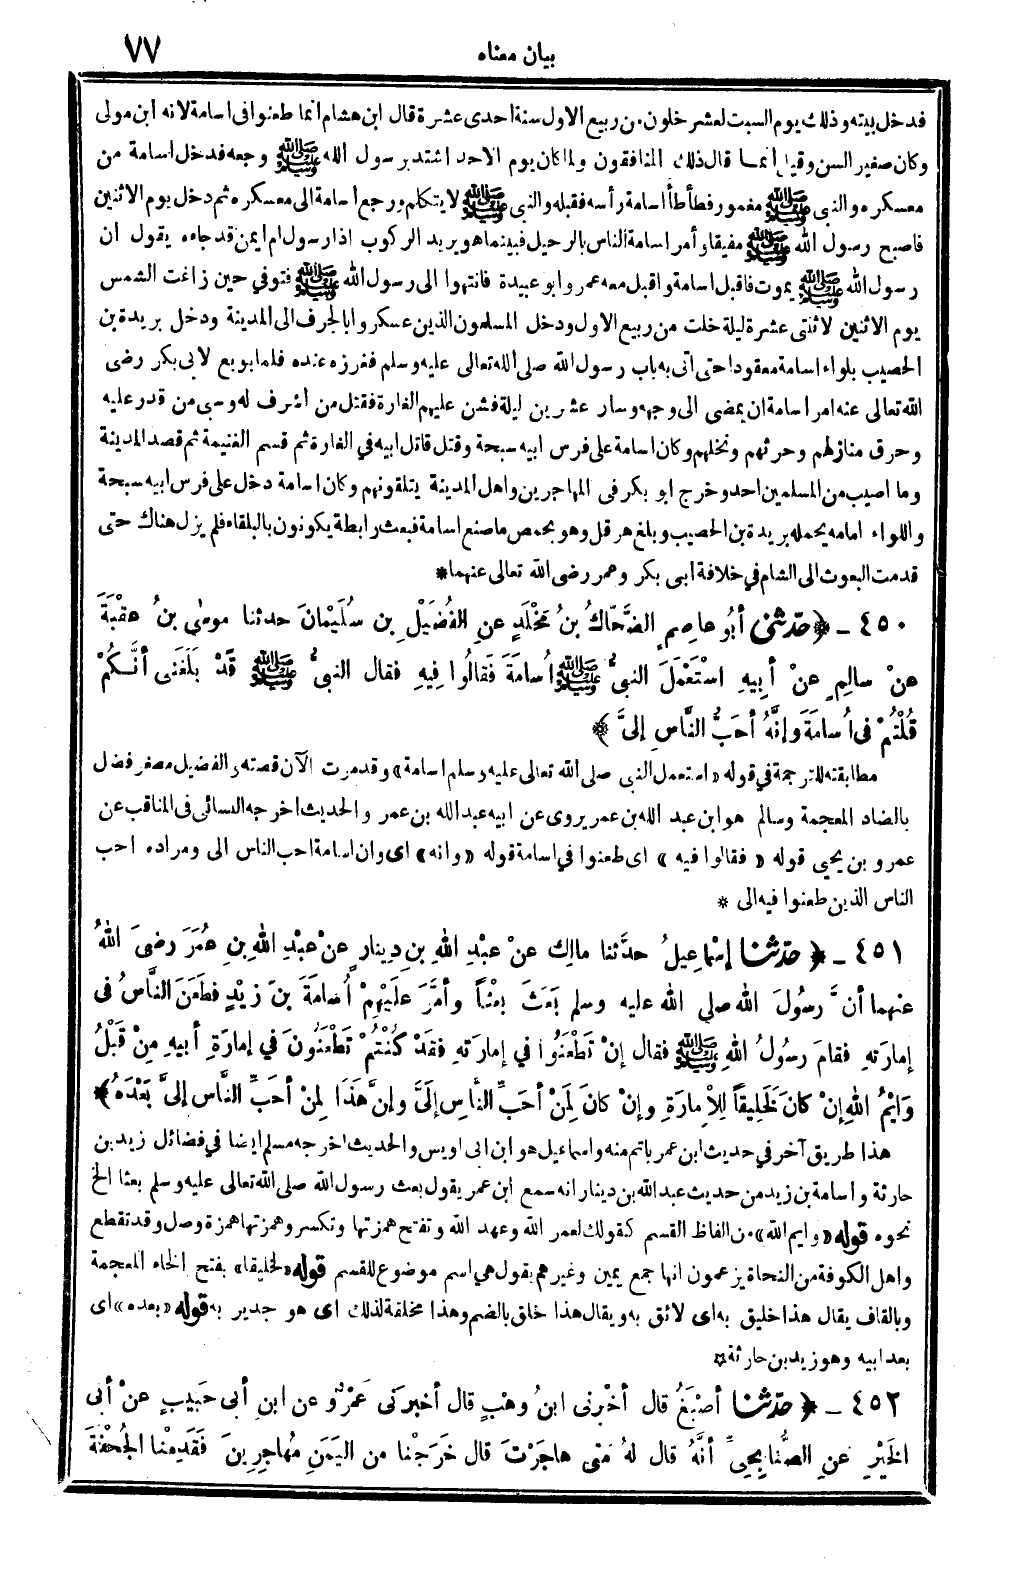 ٧٧
بيان معناه
فدخل بيته وذلك يوم السبت لعشر خلون من ربيع الاول سنة احدى عشرة قال ابن هشام انما طعنوا فى اسامة لانه ابن مولى
وكان صغير السن وقيل انما قال ذلك المنافقون ولما كان يوم الاحد اشتد برسول الله ﷺ وجعه فدخل اسامة من
معسكره والنبى ﷺ مغمور فطأطأ أسامة رأسه فقبله والنبى ﷺ لا يتكلم ورجع أسامة الى معسكره ثم دخل يوم الاثنين
فاصبح رسول الله ﷺ مفيقا وأمر اسامة الناس بالرحيل فبينما هو يريد الركوب اذا رسول ام ايمن قد جاءه يقول ان
رسول الله ﷺ يموت فاقبل أسامة واقبل معه عمر وابو عبيدة فانتهوا الى رسول الله ﷺ فتوفي حين زاغت الشمس
يوم الاثنين لاثنتى عشرة ليلة خلت من ربيع الاول ودخل المسلمون الذين عسكروا بالجرف الى المدينة ودخل بريدة بن
الحصيب بلواء اسامة معقودا حتى اتى به باب رسول الله صلى الله تعالى عليه وسلم فغرزه عنده فلما بويع لابى بكر رضى
الله تعالى عنه امر اسامة ان يمضى الى وجهه وسار عشرين ليلة فشن عليهم الغارة فقتل من أشرف له وسبى من قدر عليه
وحرق منازلهم وحرثهم ونخلهم وكان اسامة على فرس ابيه سبحة وقتل قاتل ابيه في الغارة ثم قسم الغنيمة ثم قصد المدينة
وما اصيب من المسلمين احد وخرج ابو بكر فى المهاجرين واهل المدينة يتلقونهم وكان اسامة دخل على فرس ابيه سبحة
واللواء امامه يحمله بريدة بن الحصيب وبلغ هرقل وهو بحمص ما صنع اسامة فبعث رابطة يكونون بالبلقاء فلم يزل هناك حتى
قدمت البعوث الى الشام في خلافة ابى بكر وعمر رضى الله تعالى عنهما *
٤٥٠ - ﴿ حدثنى أبُو عاصِمٍ الضَّحَّاكُ بنُ مَخْلَدٍ عنِ الفُضَيْلِ بنِ سُلَيْمَانَ حدثنا موسٰى بنُ عقْبَةَ
عنْ سالِمٍ عنْ أبِيهِ اسْتَعْمَلَ النبىُّ ﷺ اُسامَةَ فَقالُوا فِيهِ فقال النبىُّ ﷺ قَدْ بَلَغَنى أنَّكُمْ
قُلْتُمْ فى اُسامَةَ وإنَّهُ أحَبُّ النَّاسِ إلىَّ ﴾
مطابقته للترجمة في قوله «استعمل النبى صلى الله تعالى عليه وسلم اسامة» وقد مرت الآن قصته والفضيل مصغر فضل
بالضاد المعجمة وسالم هو ابن عبد الله بن عمر يروى عن ابيه عبد الله بن عمر والحديث اخرجه النسائى فى المناقب عن
عمرو بن يحيى قوله « فقالوا فيه » اى طعنوا في اسامة قوله «وانه» اى وان اسامة احب الناس الى ومراده احب
الناس الذين طعنوا فيه الى *
٤٥١ - ﴿ حدثنا إسْماعِيلُ حدَّثنا مالِك عنْ عبْدِ اللهِ بنِ دِينارٍ عنْ عبْدِ اللهِ بنِ عُمَرَ رضىَ اللهُ
عنهما أنَّ رسُولَ الله صلى الله عليه وسلم بَعَثَ بعْثاً وأمَّرَ عَلَيْهِمْ اُسامَةَ بنَ زيْدٍ فطَعَنَ النَّاسُ فى
إمارَتهِ فقامَ رسُولُ اللهِ ﷺ فقال إنْ تَطْعَنُوا في إمارَتهِ فقَدْ كُنْتُمْ تَطْعَنُونَ في إمارَةِ أبيهِ مِنْ قَبْلُ
وَايْمُ اللهِ إنْ كانَ لَخَلِيقاً لِلْإمارَةِ وإنْ كانَ لَمِنْ أحَبِّ النَّاسِ إلَىَّ وإنَّ هَذَا لِمَنْ أحَبِّ النَّاسِ إلىَّ بَعْدَهُ ﴾
هذا طريق آخر في حديث ابن عمر باتم منه واسماعيل هو ابن ابى اويس والحديث اخرجه مسلم ايضا في فضائل زيد بن
حارثة واسامة بن زيد من حديث عبد الله بن دينار انه سمع ابن عمر يقول بعث رسول الله صلى الله تعالى عليه وسلم بعثا الخ
نحوه قوله «وايم الله» من الفاظ القسم كقولك لعمر الله وعهد الله وتفتح همزتها وتكسر وهمزتها همزة وصل وقد تقطع
واهل الكوفة من النحاة يزعمون انها جمع يمين وغيرهم يقول هي اسم موضوع للقسم قوله «لخليقا» بفتح الخاء المعجمة
وبالقاف يقال هذا خليق به اى لائق به ويقال هذا خلق بالضم وهذا مخلقة لذلك اى هو جدير به قوله «بعده» اى
بعد ابيه وهو زيد بن حارثة *
٤٥٢ - ﴿ حدثنا أصْبَغُ قال أخْبَرنى ابنُ وهْبٍ قال أخبرَنى عَمْرٌو عن ابنِ أبى حَبيبٍ عنْ أبى
الخَيْرِ عنِ الصُّنابِحِىِّ أنَّهُ قال لهُ مَتى هاجَرْتَ قال خَرَجْنا من اليَمَنِ مُهاجِرِينَ فَقَدِمْنا الجُحْفَةَ